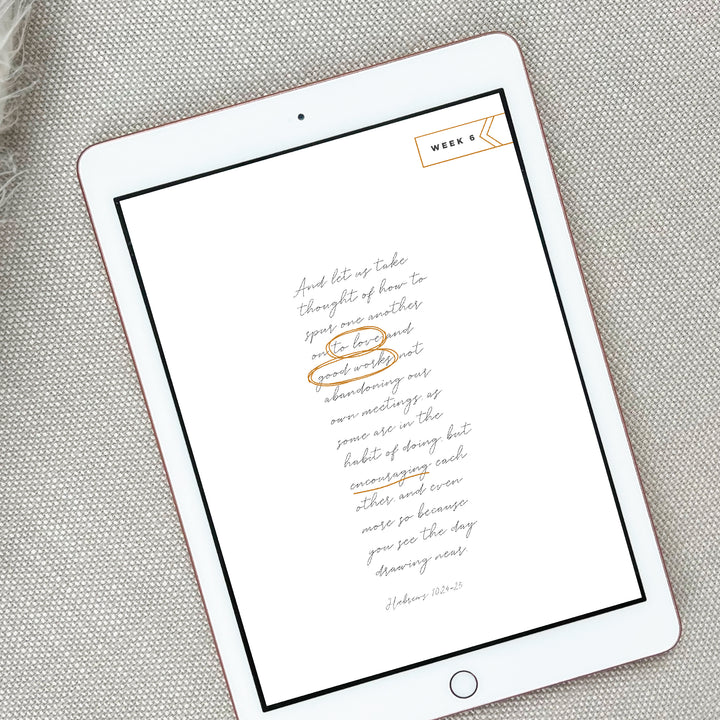 WEEK 6
And let us take
thought of how to
spur one another
on to love and
good works, not
abandoning our
own meetings, as
some are in the
habit of doing, but
encouraging each
other, and even
more so because
you see the day
drawing near.
Hebrews 10:24-25